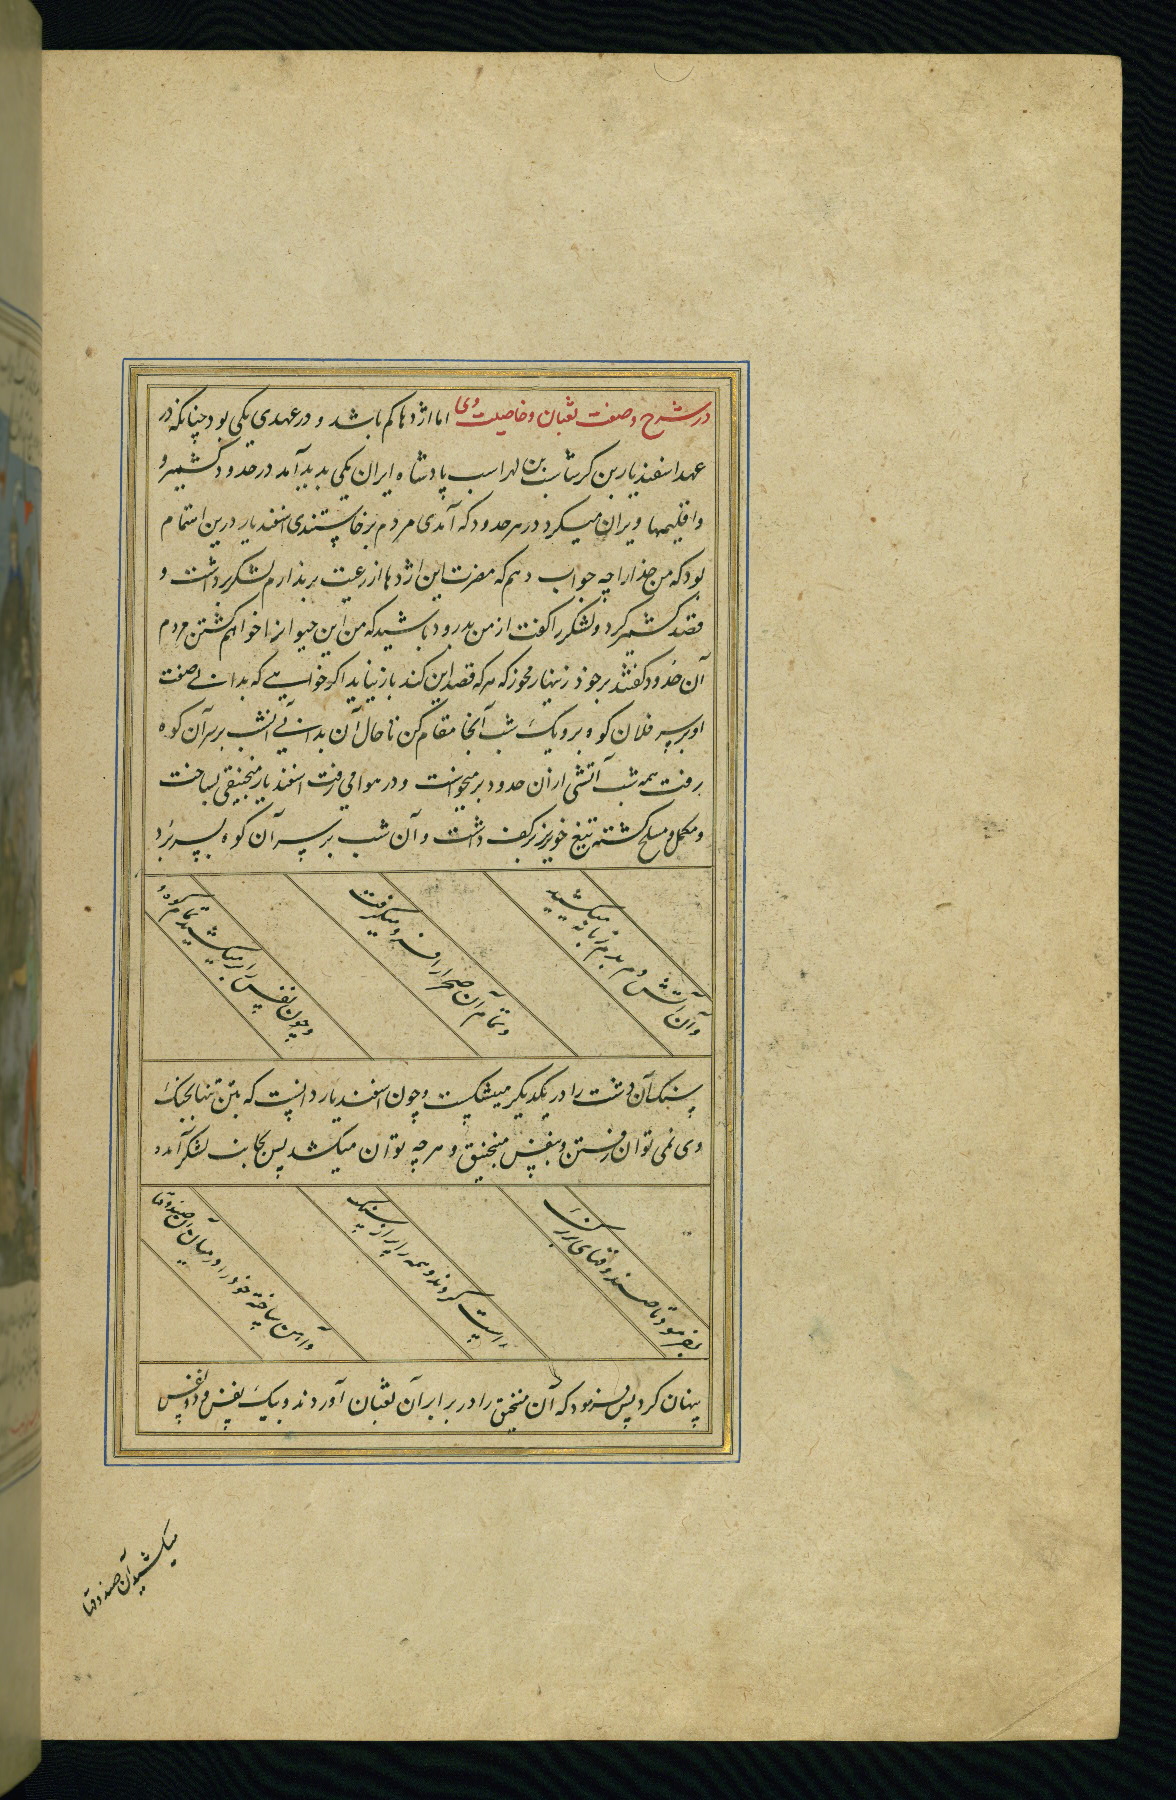 در شرح و صفت ثعبان و خاصیت وی اما اژدها کم باشد و در عهدی یکی بود چنانکه در
عهد اسفندیار بن کرشتاسب بن لهراسب پادشاه ایران یکی بدید آمد در حدود کشمیر و
و اقلیمها ویران میکرد در هر حدود که آمدی مردم برخاستندی اسفندیار درین اهتمام
بود که من خدا را چه جواب دهم که مضرت این اژدها از رعیت برندارم لشکر برداشت و
قصد کشمیر کرد و لشکر را کفت از من بدرود باشید که من این حیوانرا خواهم کشتن مردم
آن حدود کفتند برخود زنهار مخور که هر که قصد این کند باز نیاید اکر خواهی که بدانی صفت
او بر سر فلان کوه برو یک شب آنجا مقام کن تا حال آن بدانی آنشب بر سر آن کوه
برفت همه شب آتشی ازان حدود برمیخواست و در هوا می رفت اسفندیار منجنیقی بساخت
و مکمل و مسلح کشته تیغ خونریز بر کف داشت و آن شب بر سر آن کوه بسر برد
و آن آتش دم بدم زبانه میکشید
و تمام آن صحرا را فرو میکرفت
و چون نفس را میکشید تمام کوه و
سنک آن دشت را در یکدیکر میشکست و چون اسفندیار دانست که بتن تنها بجنک
وی نمی توان رفتن و بنفس منجنیق و هر چه توان میکشد پس بجانب لشکر آمد و
بفرمود تا صندوقهای بزرک
راست کردند و همه را پر از سنک
و آهن ساخته خود را در میان آن صندوقها
پنهان کرد پس بفرمود که آن منجنیق را در برابر آن ثعبان آوردند و بیک نفس و دو نفس
میکشید آن صندوقها